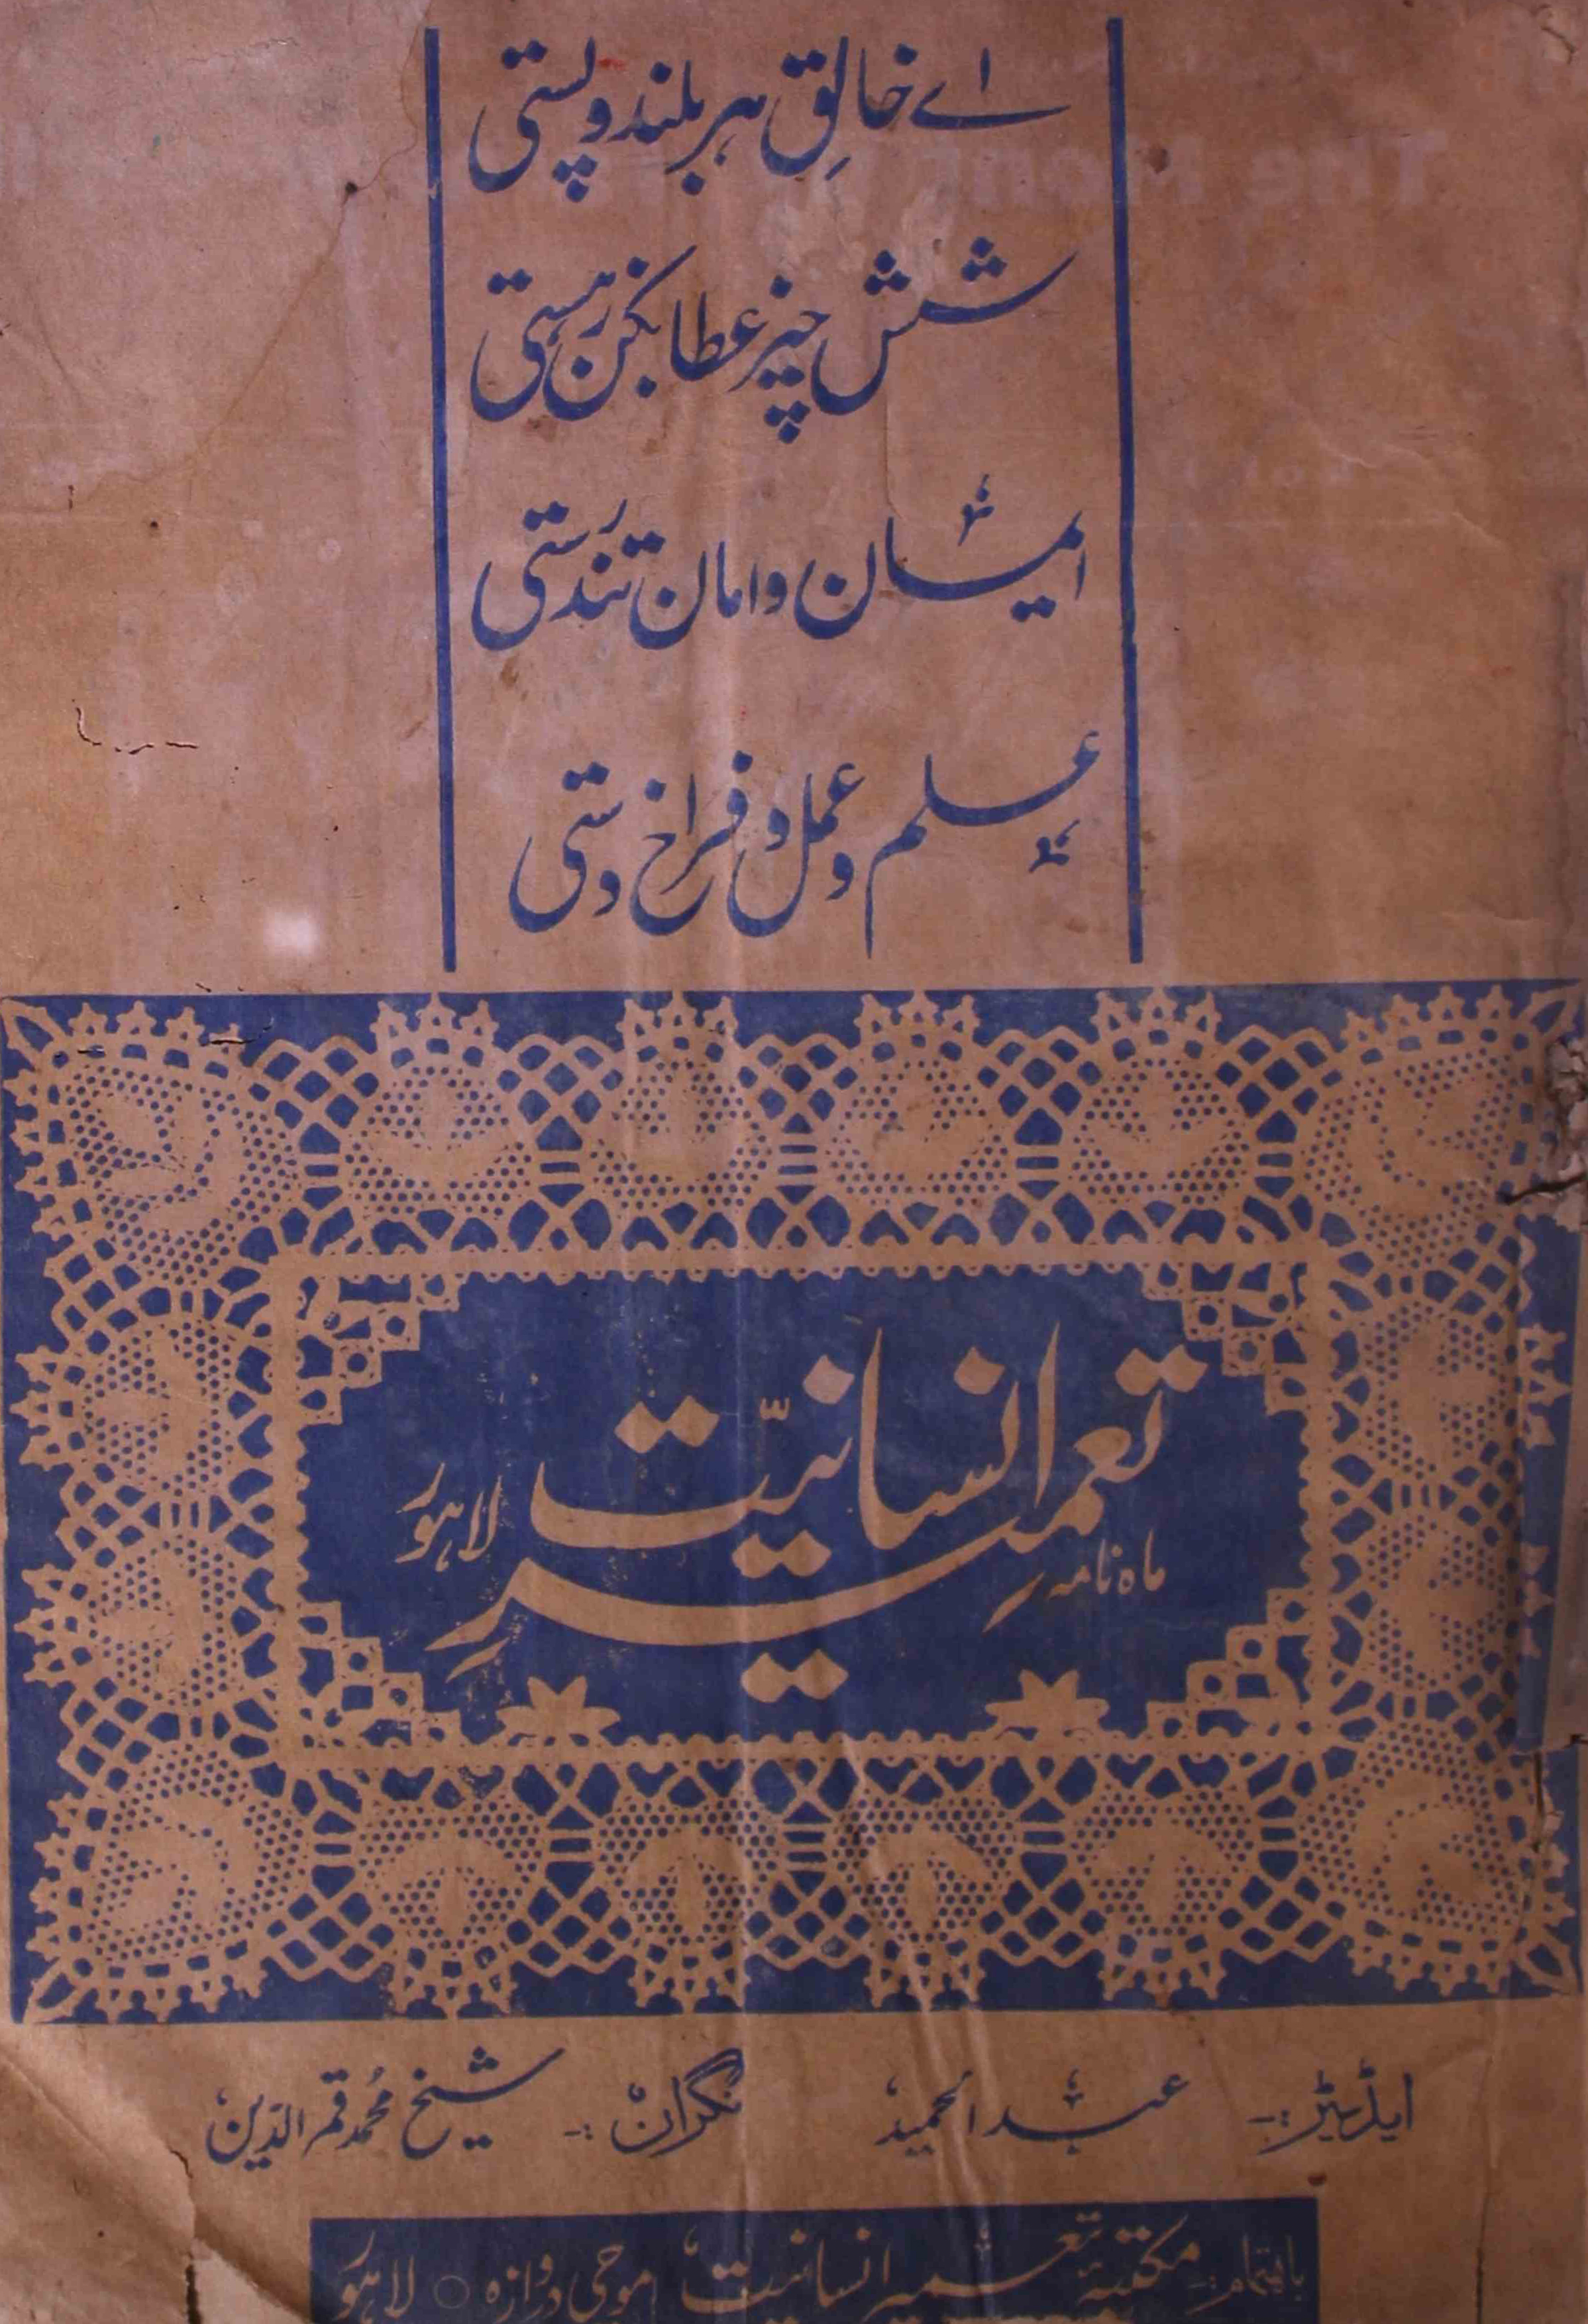 اے خالقِ ہر بلند و پستی
شش چیز عطا بکن ز ہستی
ایمان و امان تندرستی
علم و عمل و فراخ دستی
ماہ نامہ
تعمیرِ انسانیّت
لاہور
ایڈیٹر:- عبد الحمید نگران:- شیخ محمد قمر الدین
باہتمام:- مکتبۂ تعمیر انسانیت، موچی دروازہ ○ لاہور